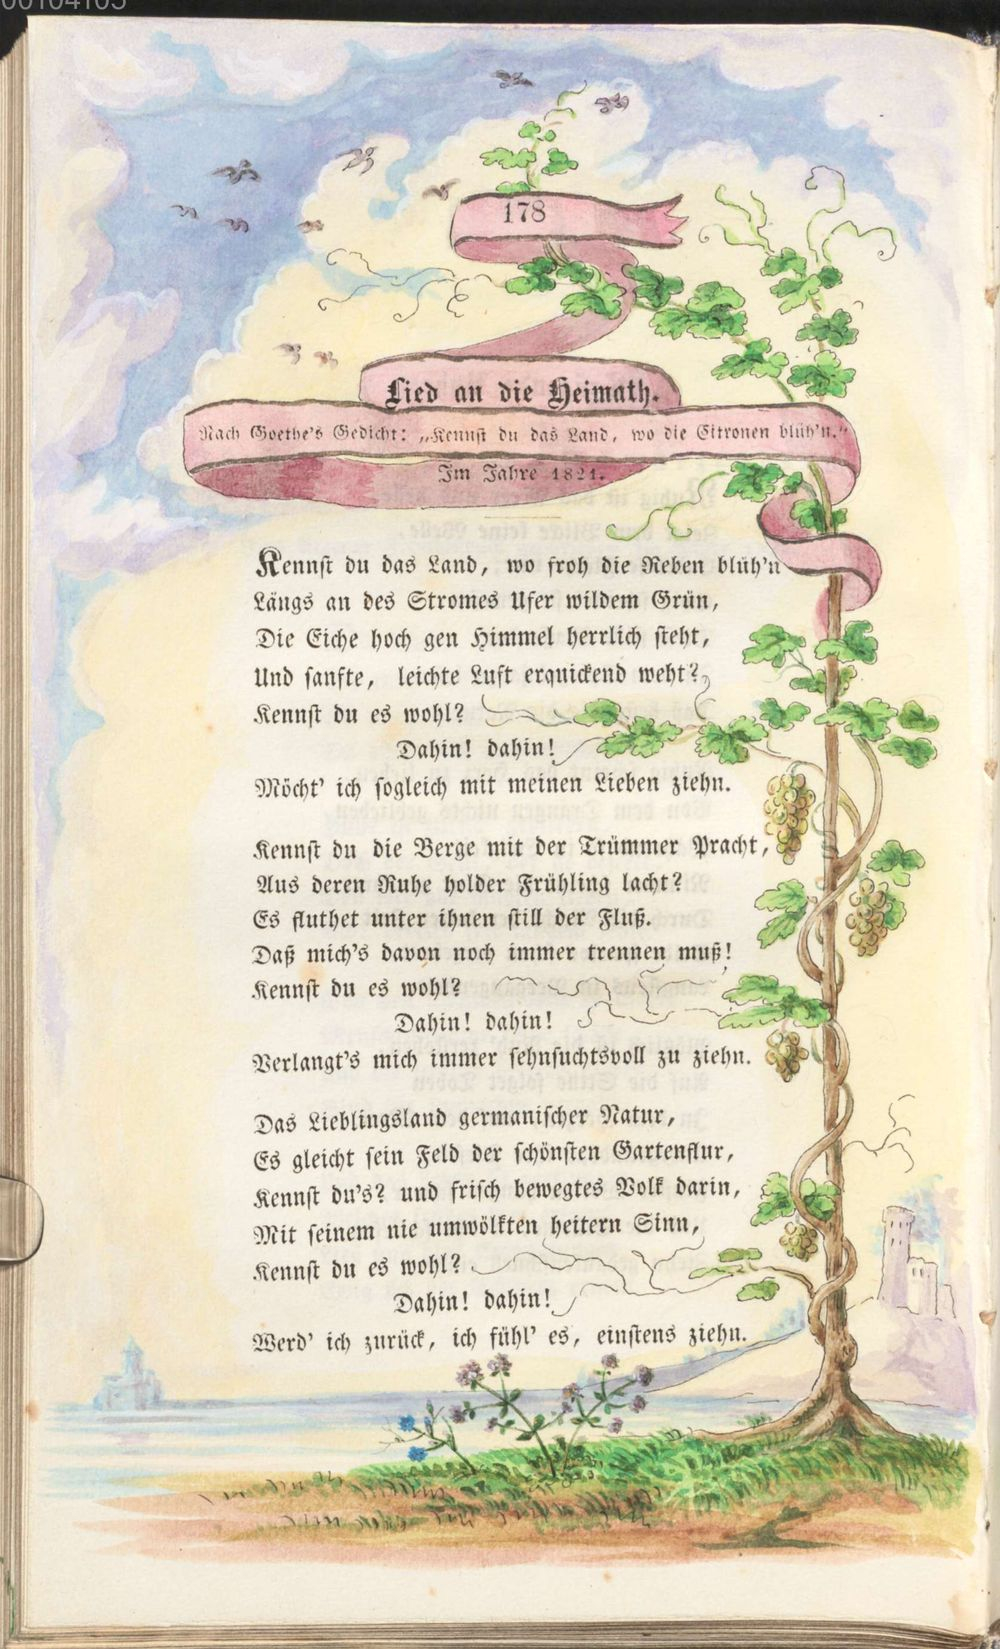 00104105
178
Lied an die Heimath.
Nach Goethe's Gedicht: „Kennst du das Land, wo die Citronen blüh'n.“
Im Jahre 1821.
Kennst du das Land, wo froh die Reben blüh'n
Längs an des Stromes Ufer wildem Grün,
Die Eiche hoch gen Himmel herrlich steht,
Und sanfte, leichte Luft erquickend weht?
Kennst du es wohl?
Dahin! dahin!
Möcht' ich sogleich mit meinen Lieben ziehn.
Kennst du die Berge mit der Trümmer Pracht,
Aus deren Ruhe holder Frühling lacht?
Es fluthet unter ihnen still der Fluß.
Daß mich's davon noch immer trennen muß!
Kennst du es wohl?
Dahin! dahin!
Verlangt's mich immer sehnsuchtsvoll zu ziehn.
Das Lieblingsland germanischer Natur,
Es gleicht sein Feld der schönsten Gartenflur,
Kennst du's? und frisch bewegtes Volk darin,
Mit seinem nie umwölkten heitern Sinn,
Kennst du es wohl?
Dahin! dahin!
Werd' ich zurück, ich fühl' es, einstens ziehn.